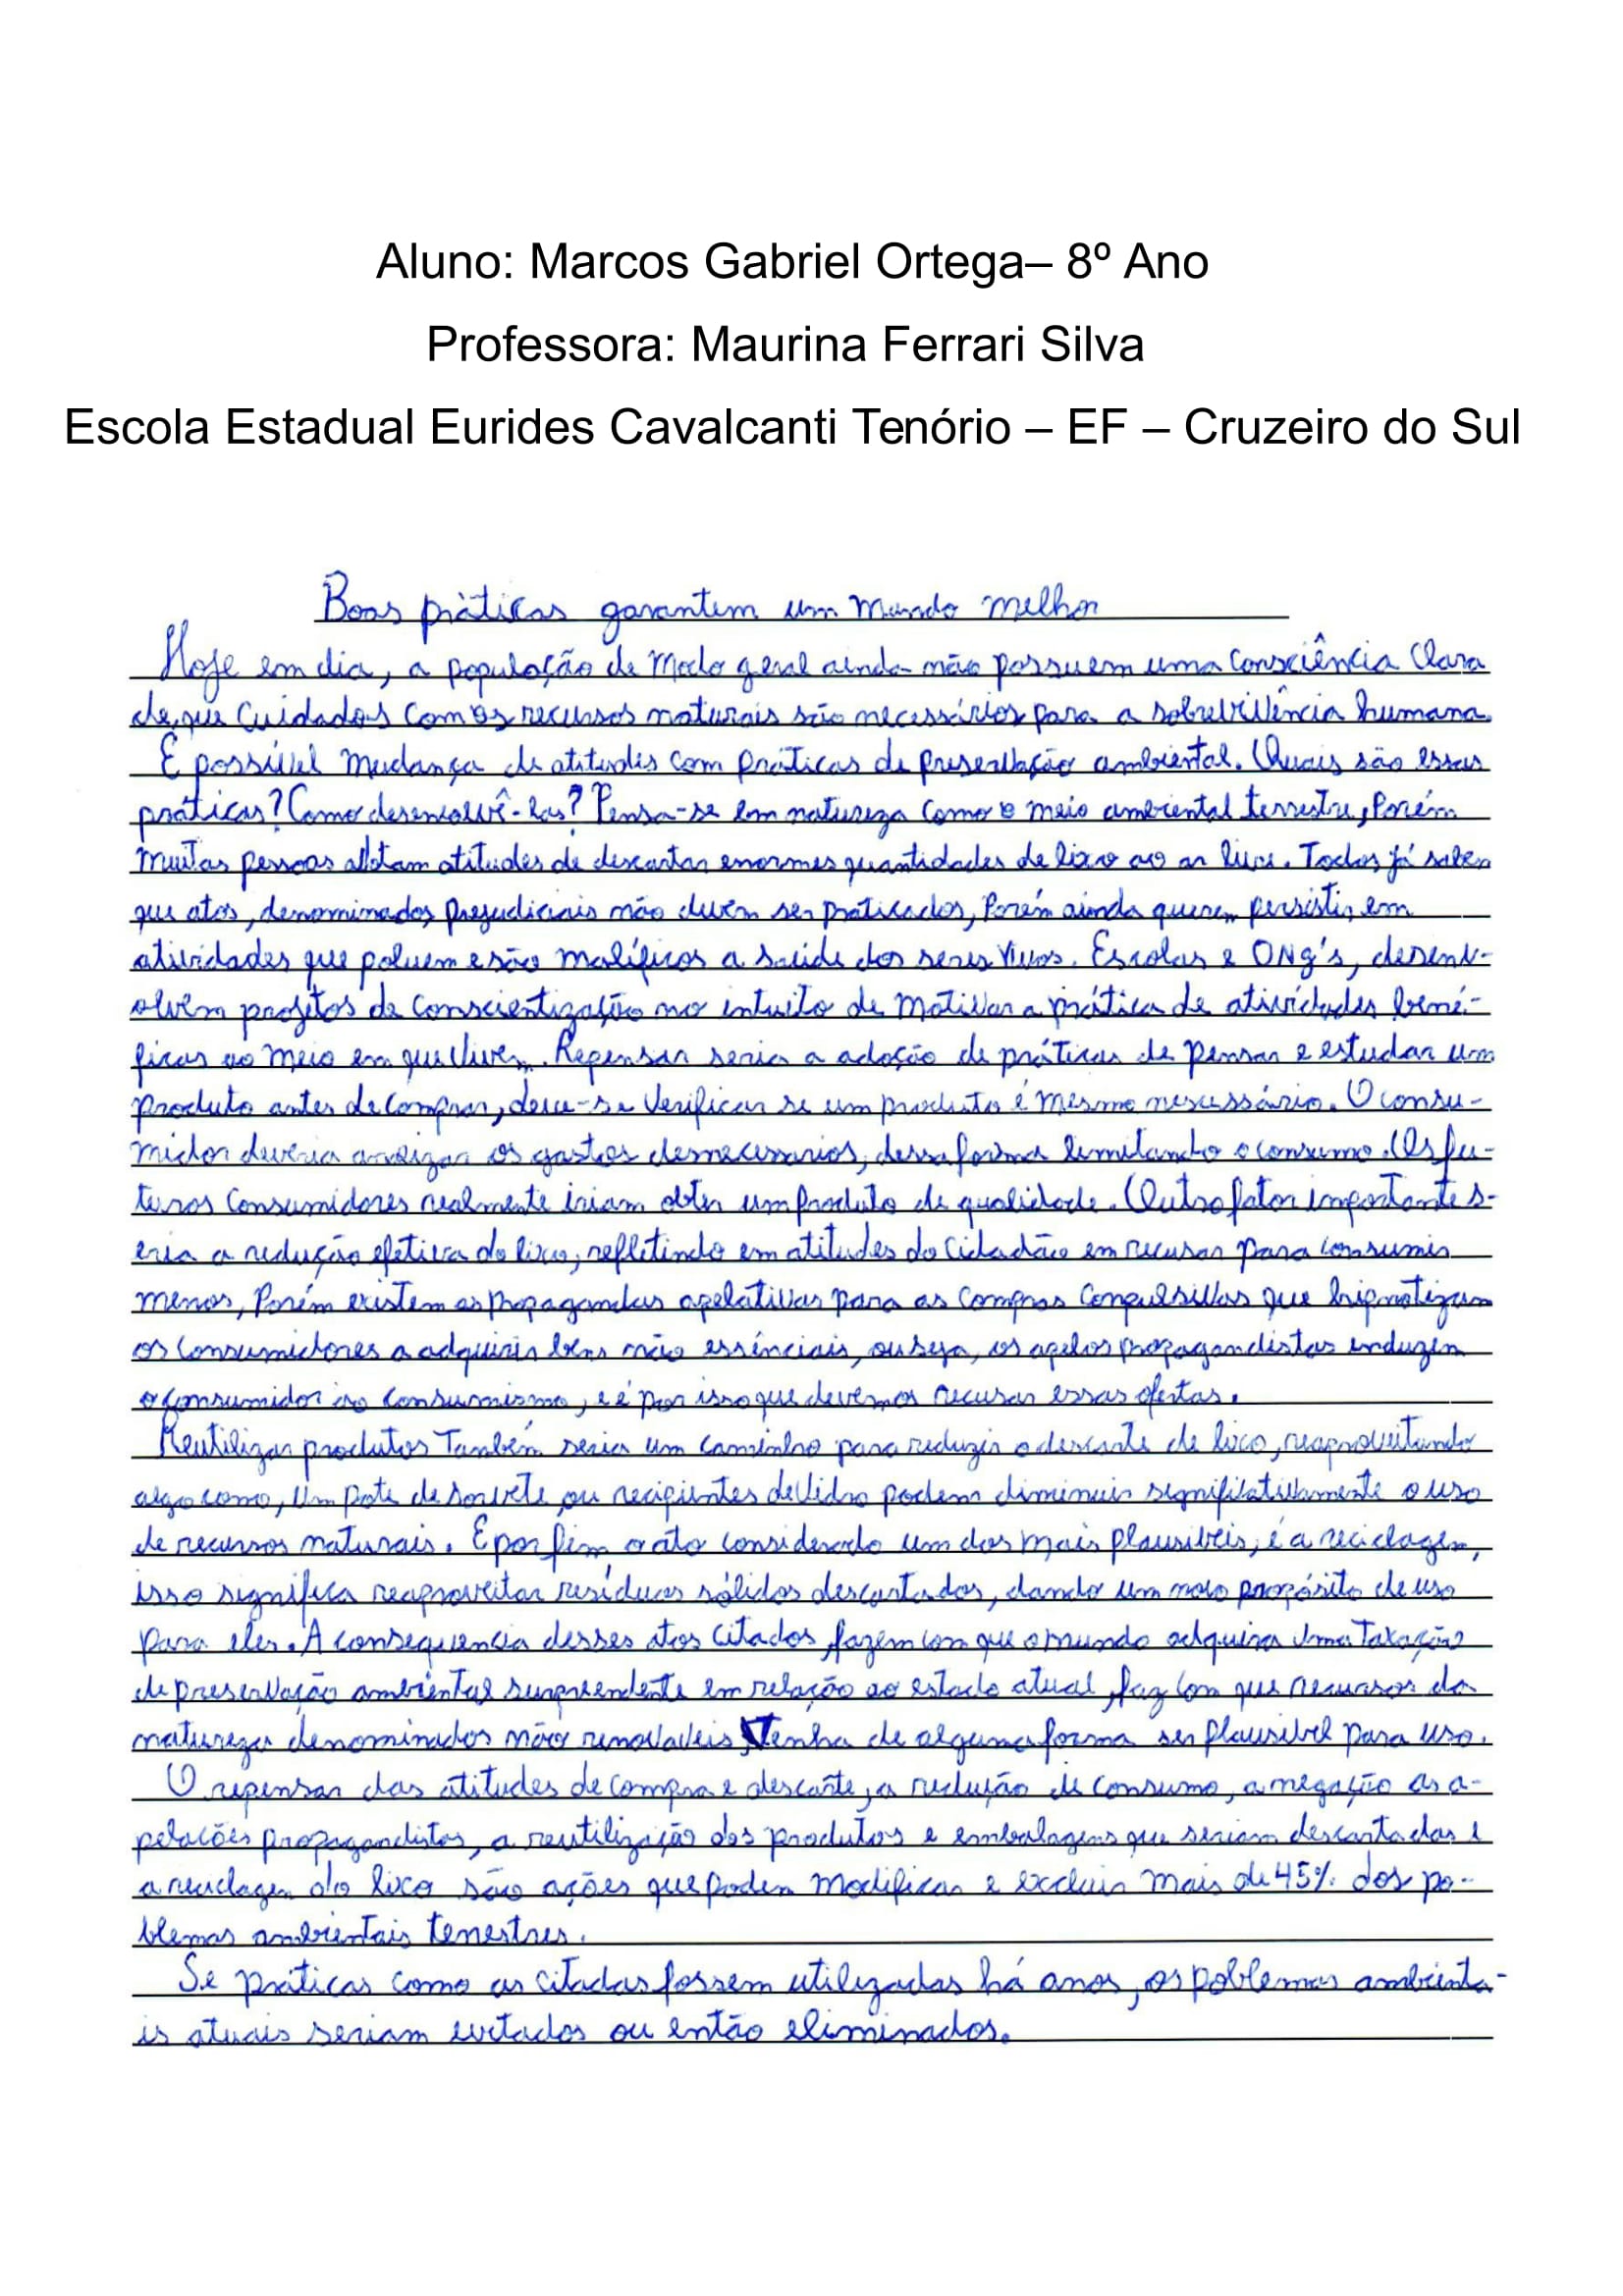 Aluno: Marcos Gabriel Ortega– 8º Ano
Professora: Maurina Ferrari Silva
Escola Estadual Eurides Cavalcanti Tenório – EF – Cruzeiro do Sul
Boas práticas garantem um mundo melhor
Hoje em dia, a população de modo geral ainda não possuem uma consciência clara
de que cuidados com os recursos naturais são necessários para a sobrevivência humana.
É possível mudança de atitudes com práticas de preservação ambiental. Quais são essas
práticas? Como desenvolvê-las? Pensa-se em natureza como o meio ambiental terrestre, porém
muitas pessoas adotam atitudes de descartar enormes quantidades de lixo ao ar livre. Todos já sabem
que atos, denominados prejudiciais não devem ser praticados, porém ainda querem persistir em
atividades que poluem e são maléficos a saúde dos seres vivos. Escolas e ONG's, desenv-
olvem projetos de conscientização no intuito de motivar a prática de atividades bené-
ficas ao meio em que vivem. Repensar seria a adoção de práticas de pensar e estudar um
produto antes de comprar, deve-se verificar se um produto é mesmo nescessário. O consu-
midor deveria analizar os gastos desnecessarios, dessa forma limitando o consumo. Os fu-
turos consumidores realmente iriam obter um produto de qualidade. Outro fator importante s-
eria a redução efetiva do lixo, refletindo em atitudes do cidadão em recusar para consumir
menos, porém existem as propagandas apelativas para as compras compulsivas que hipnotizam
os consumidores a adquirir bens não essênciais, ou seja, os apelos propagandistas induzem
o consumidor ao consumismo, e é por isso que devemos recusar essas ofertas.
Reutilizar produtos também seria um caminho para reduzir o descarte de lixo, reaproveitando
algo como, um pote de sorvete, ou recipientes de vidro podem diminuir significativamente o uso
de recursos naturais. E por fim, o ato considerado um dos mais plausíveis, é a reciclagem,
isso significa reaproveitar resíduos sólidos descartados, dando um novo propósito de uso
para eles. A consequencia desses atos citados fazem com que o mundo adquira uma taxação
de preservação ambiental surpreendente em relação ao estado atual, faz com que recursos da
natureza denominados não renovaveis, tenha de alguma forma ser plausivel para uso.
O repensar das atitudes de compra e descarte, a redução de consumo, a negação as a-
pelacões propagandistas, a reutilização dos produtos e embalagens que seriam descartadas e
a reciclagem do lixo são ações que podem modificar e excluir mais de 45% dos po-
blemas ambientais terrestres.
Se práticas como as citadas fossem utilizadas há anos, os poblemas ambienta-
is atuais seriam evitados ou então eliminados.